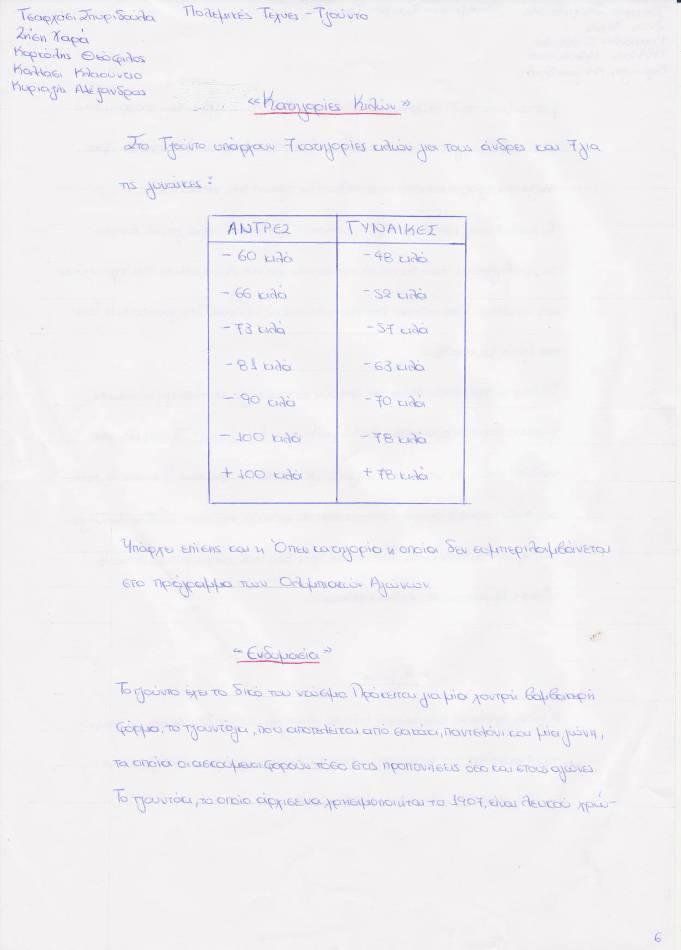 Τσαρχόσι Σπυριδούλα Πολεμικές Τέχνες - Τζούντο
Ζήση Χαρά
Θεόφιλος
Κυριαζή Αλέξανδρος
"Κατηγορίες Κιλών"
Στο Τζούντο υπάρχουν 7 κατηγορίες κιλών για τους άνδρες και 7 για
τις γυναίκες:
ΑΝΤΡΕΣ ΓΥΝΑΙΚΕΣ
- 60 κιλά - 48 κιλά
- 66 κιλά - 52 κιλά
- 73 κιλά - 57 κιλά
- 81 κιλά - 63 κιλά
- 90 κιλά - 70 κιλά
- 100 κιλά - 78 κιλά
+ 100 κιλά + 78 κιλά
Υπάρχει επίσης και η Όπεν κατηγορία η οποία δεν συμπεριλαμβάνεται
στο πρόγραμμα των Ολυμπιακών Αγώνων
"Ενδυμασία"
Το τζούντο έχει το δικό του ντύσιμο Πρόκειται για μία χοντρή βαμβακερή
φόρμα, το τζουντόγκι, που αποτελείται από σακάκι, παντελόνι και μία ζώνη,
τα οποία οι ασκούμενοι φορούν τόσο στις προπονήσεις όσο και στους αγώνες.
Το τζουντόγκι, το οποίο άρχισε να χρησιμοποιείται το 1907, είναι λευκού χρώ-
6